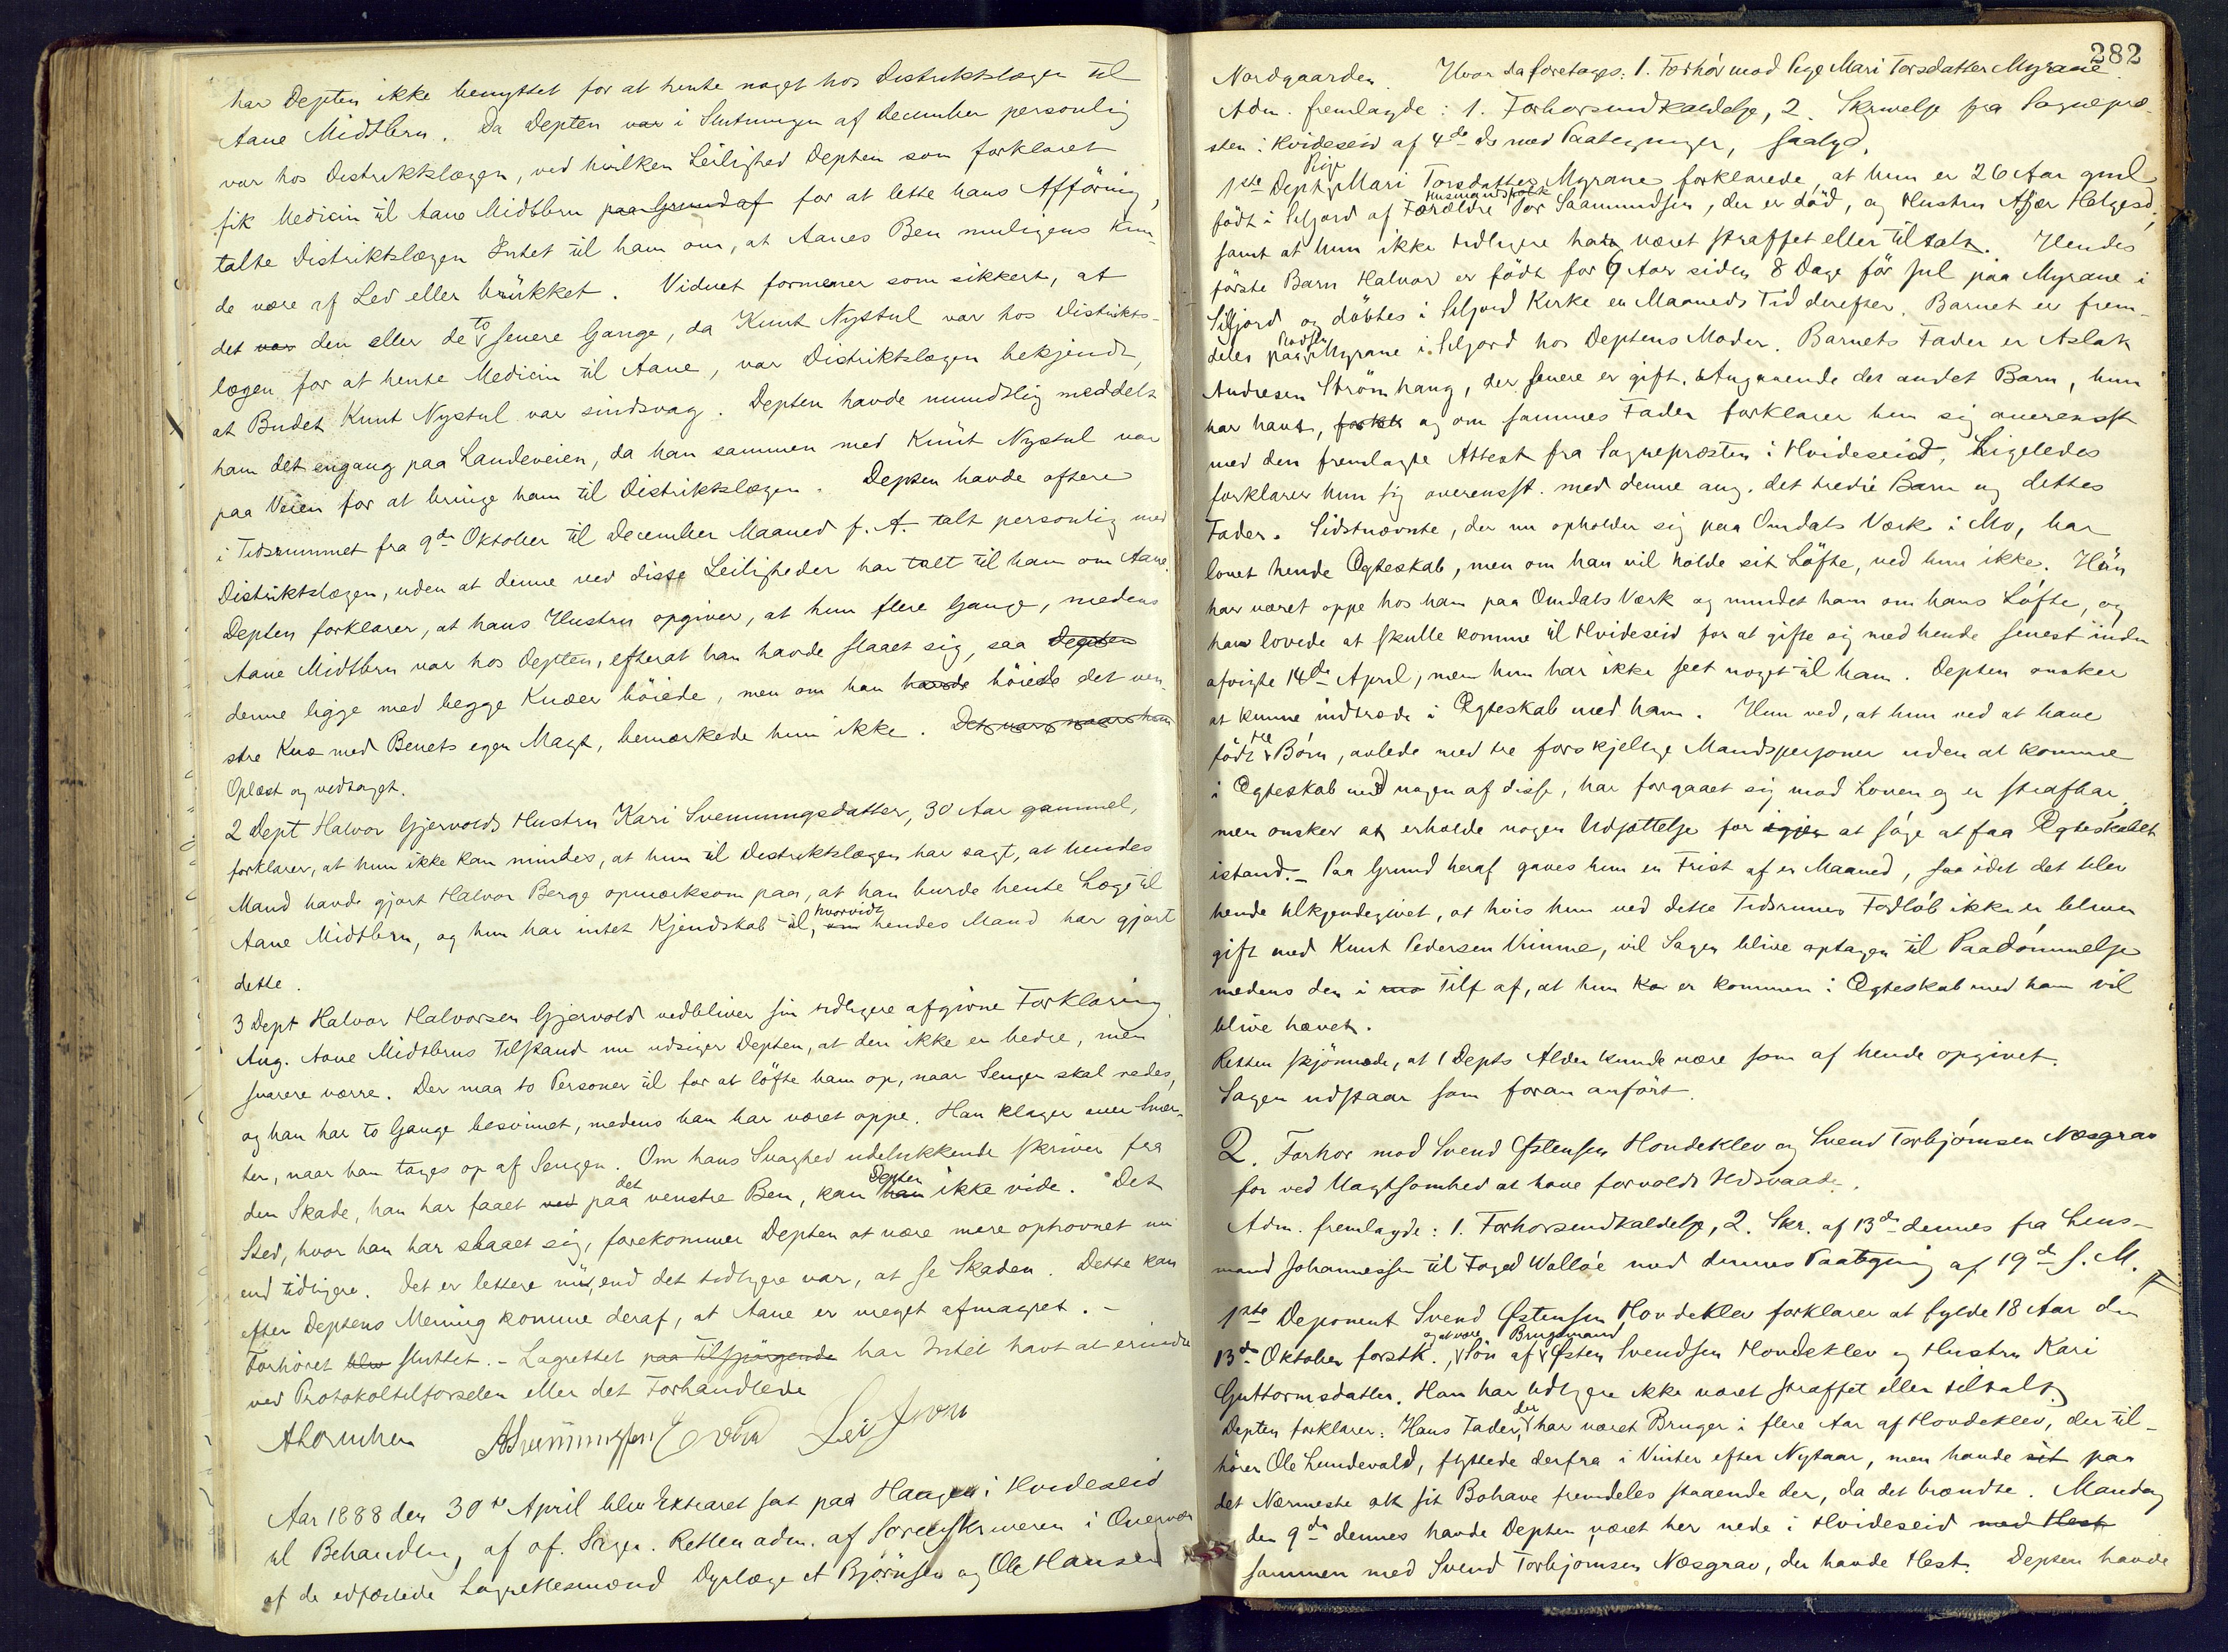 har Depten ikke benyttet for at hente noget hos Distriktslægen til
Aane Midtbrn. Da Depten var i Slutningen af December personlig
var hos Distriktslægen, ved hvilken Leilighed Depten som forklaret
fik Medicin til Aane Midtbrn paa Grund af for at lette hans Afføring,
talte Distriktslægen Intet til ham om, at Aanes Ben muligens kun-
de være af Led eller brukket. Vidnet formener som sikkert, at
det var den eller de to senere Gange, da Knut Nystul var hos Distrikts-
lægen for at hente Medicin til Aane, var Distriktslægen bekjendt,
at Budet Knut Nystul var sindsvag. Depten havde mundtlig meddelt
ham det engang paa Landeveien, da han sammen med Knut Nystul var
paa Veien for at bringe ham til Distriktslægen. Depten havde oftere
i Tidsrummet fra 9de Oktober til December Maaned f. A. talt personlig med
Distriktslægen, uden at denne ved disse Leiligheder har talt til ham om Aane.
Depten forklarer, at hans Hustru opgiver, at hun flere Gange, medens
Aane Midtbrn var hos Depten, efterat han havde slaaet sig, saa Depten
denne ligge med begge Knæer bøiede, men om han havde bøiede det ven-
stre Knæ med Benets egen Magt, bemærkede hun ikke. Det var naar han
Oplæst og vedtaget.
2 Dept Halvor Gjervolds Hustru Kari Svenningsdatter, 30 Aar gammel,
forklarer, at hun ikke kan mindes, at hun til Distriktslægen har sagt, at hendes
Mand havde gjort Halvor Berge opmærksom paa, at han burde hente Læge til
Aane Midtbrn, og hun har intet Kjendskab til, om hvorvidt hendes Mand har gjort
dette.
3 Dept Halvor Halvorsen Gjervold vedbliver sin tidligere afgivne Forklaring.
Ang. Aane Midtbrns Tilstand nu udsiger Depten, at den ikke er bedre, men
snarere værre. Der maa to Personer til for at løfte ham op, naar Sengen skal redes,
og han har to Gange besvimet, medens han har været oppe. Han klager over Smer-
ter, naar han tages op af Sengen. Om hans Svaghed udelukkende skriver fra
den Skade, han har faaet ved paa det venstre Ben, kan han Depten ikke vide. Det
Sted, hvor han har slaaet sig, forekommer Depten at være mere ophovnet nu
end tidligere. Det er lettere nu, end det tidligere var, at se Skaden. Dette kan
efter Deptens Mening komme deraf, at Aane er meget afmagret. -
Forhøret blev sluttet. - Lagrettet paa Tilspørgende har Intet havt at erindre
ved Protokoltilførselen eller det Forhandlede
Aar 1888 den 30te April blev Extraret sat paa Haugen i Hvideseid
til Behandling af of. Sager. Retten adm. af Sorenskriveren i Overvær
af de edfæstede Lagrettesmænd Dyrlæge A Bjørnsen og Ole Hansen
282
Nordgaarden. Hvor da foretages: 1. Forhør mod Pige Mari Torsdatter Myrane.
Adm. fremlagde: 1. Forhørsindkaldelse, 2. Skrivelse fra Sognepræ-
sten i Hvideseid af 4de ds med Paategninger, saalyd.
1ste Dept Pige Mari Torsdatter Myrane forklarede, at hun er 26 Aar gml
født i Seljord af Forældre Husmandsfolk Tor Saamundsen, der er død, og Hustru Asjer Helgesd,
samt at hun ikke tidligere have været straffet eller tiltalt. Hendes
første Barn Halvor er født for 6 Aar siden 8 Dage før Jul paa Myrane i
Siljord og døbtes i Seljord Kirke en Maaneds Tid derefter. Barnet er frem-
deles paa Pladsen Myrane i Seljord hos Deptens Moder. Barnets Fader er Aslak
Andresen Strømhaug, der senere er gift. Angaaende det andet Barn, hun
har havt, og om sammes Fader forklarer hun sig overensst
med den fremlagte Attest fra Sognepræsten i Hvideseid, Ligeledes
forklarer hun sig overensst. med denne ang. det tredie Barn og dettes
Fader. Sidstnævnte, der nu opholder sig paa Omdals Værk i Mo, har
lovet hende Ægteskab, men om han vil holde sit Løfte, ved hun ikke. Hun
har været oppe hos ham paa Omdals Værk og mindet ham om hans Løfte, og
han lovede at skulle komme til Hvideseid for at gifte sig med hende senest inden
afvigte 14de April, men hun har ikke seet noget til ham. Depten ønsker
at kunne indtræde i Ægteskab med ham. Hun ved, at hun ved at have
født tre Børn, avlede med tre forskjellige Mandspersoner uden at komme
i Ægteskab med nogen af disse, har forgaaet sig mod Loven og er strafbar,
men ønsker at erholde nogen Udsættelse for igjen at søge at faa Ægteskabet
istand. - Paa Grund heraf gaves hun en Frist af en Maaned, saa idet det blev
hende tilkjendegivet, at hvis hun ved dette Tidsrums Forløb ikke er bleven
gift med Knut Pedersen Vinme, vil Sagen blive optagen til Paadømmelse
medens den i mo Tilf af, at hun kar er kommen i Ægteskab med ham vil
blive hævet.
Retten skjønnede, at 1 Depts Alder kunde være som af hende opgivet.
Sagen udstaar som foran anført.
2. Forhør mod Svend Østensen Hondeklev og Svend Torbjørnsen Næsgrav
for ved Uagtsomhed at have forvoldt Ildsvaade.
Adm. fremlagde: 1. Forhørsindkaldelse, 2. Skr. af 13de dennes fra Lens-
mand Johannessen til Foged Walløe med dennes Paategning af 19de s. M.
1ste Deponent Svend Østensen Hovdeklev forklarer at fylde 18 Aar den
13de Oktober førstk., og at være Søn af Brugsmand Østen Svendsen Hovdeklev og Hustru Kari
Guttormsdatter. Han har tidligere ikke været straffet eller tiltalt.
Depten forklarer: Hans Fader, der har været Bruger i flere Aar af Hovdeklev, der til-
hører Ole Lundevald, flyttede derfra i Vinter efter Nytaar, men havde sit paa
det Nærmeste alt sit Bohave fremdeles staaende der, da det brændte. Mandag
den 9de dennes havde Depten været her nede i Hvideseid med Hest
sammen med Svend Torbjørnsen Næsgrav, der havde Hest. Depten havde